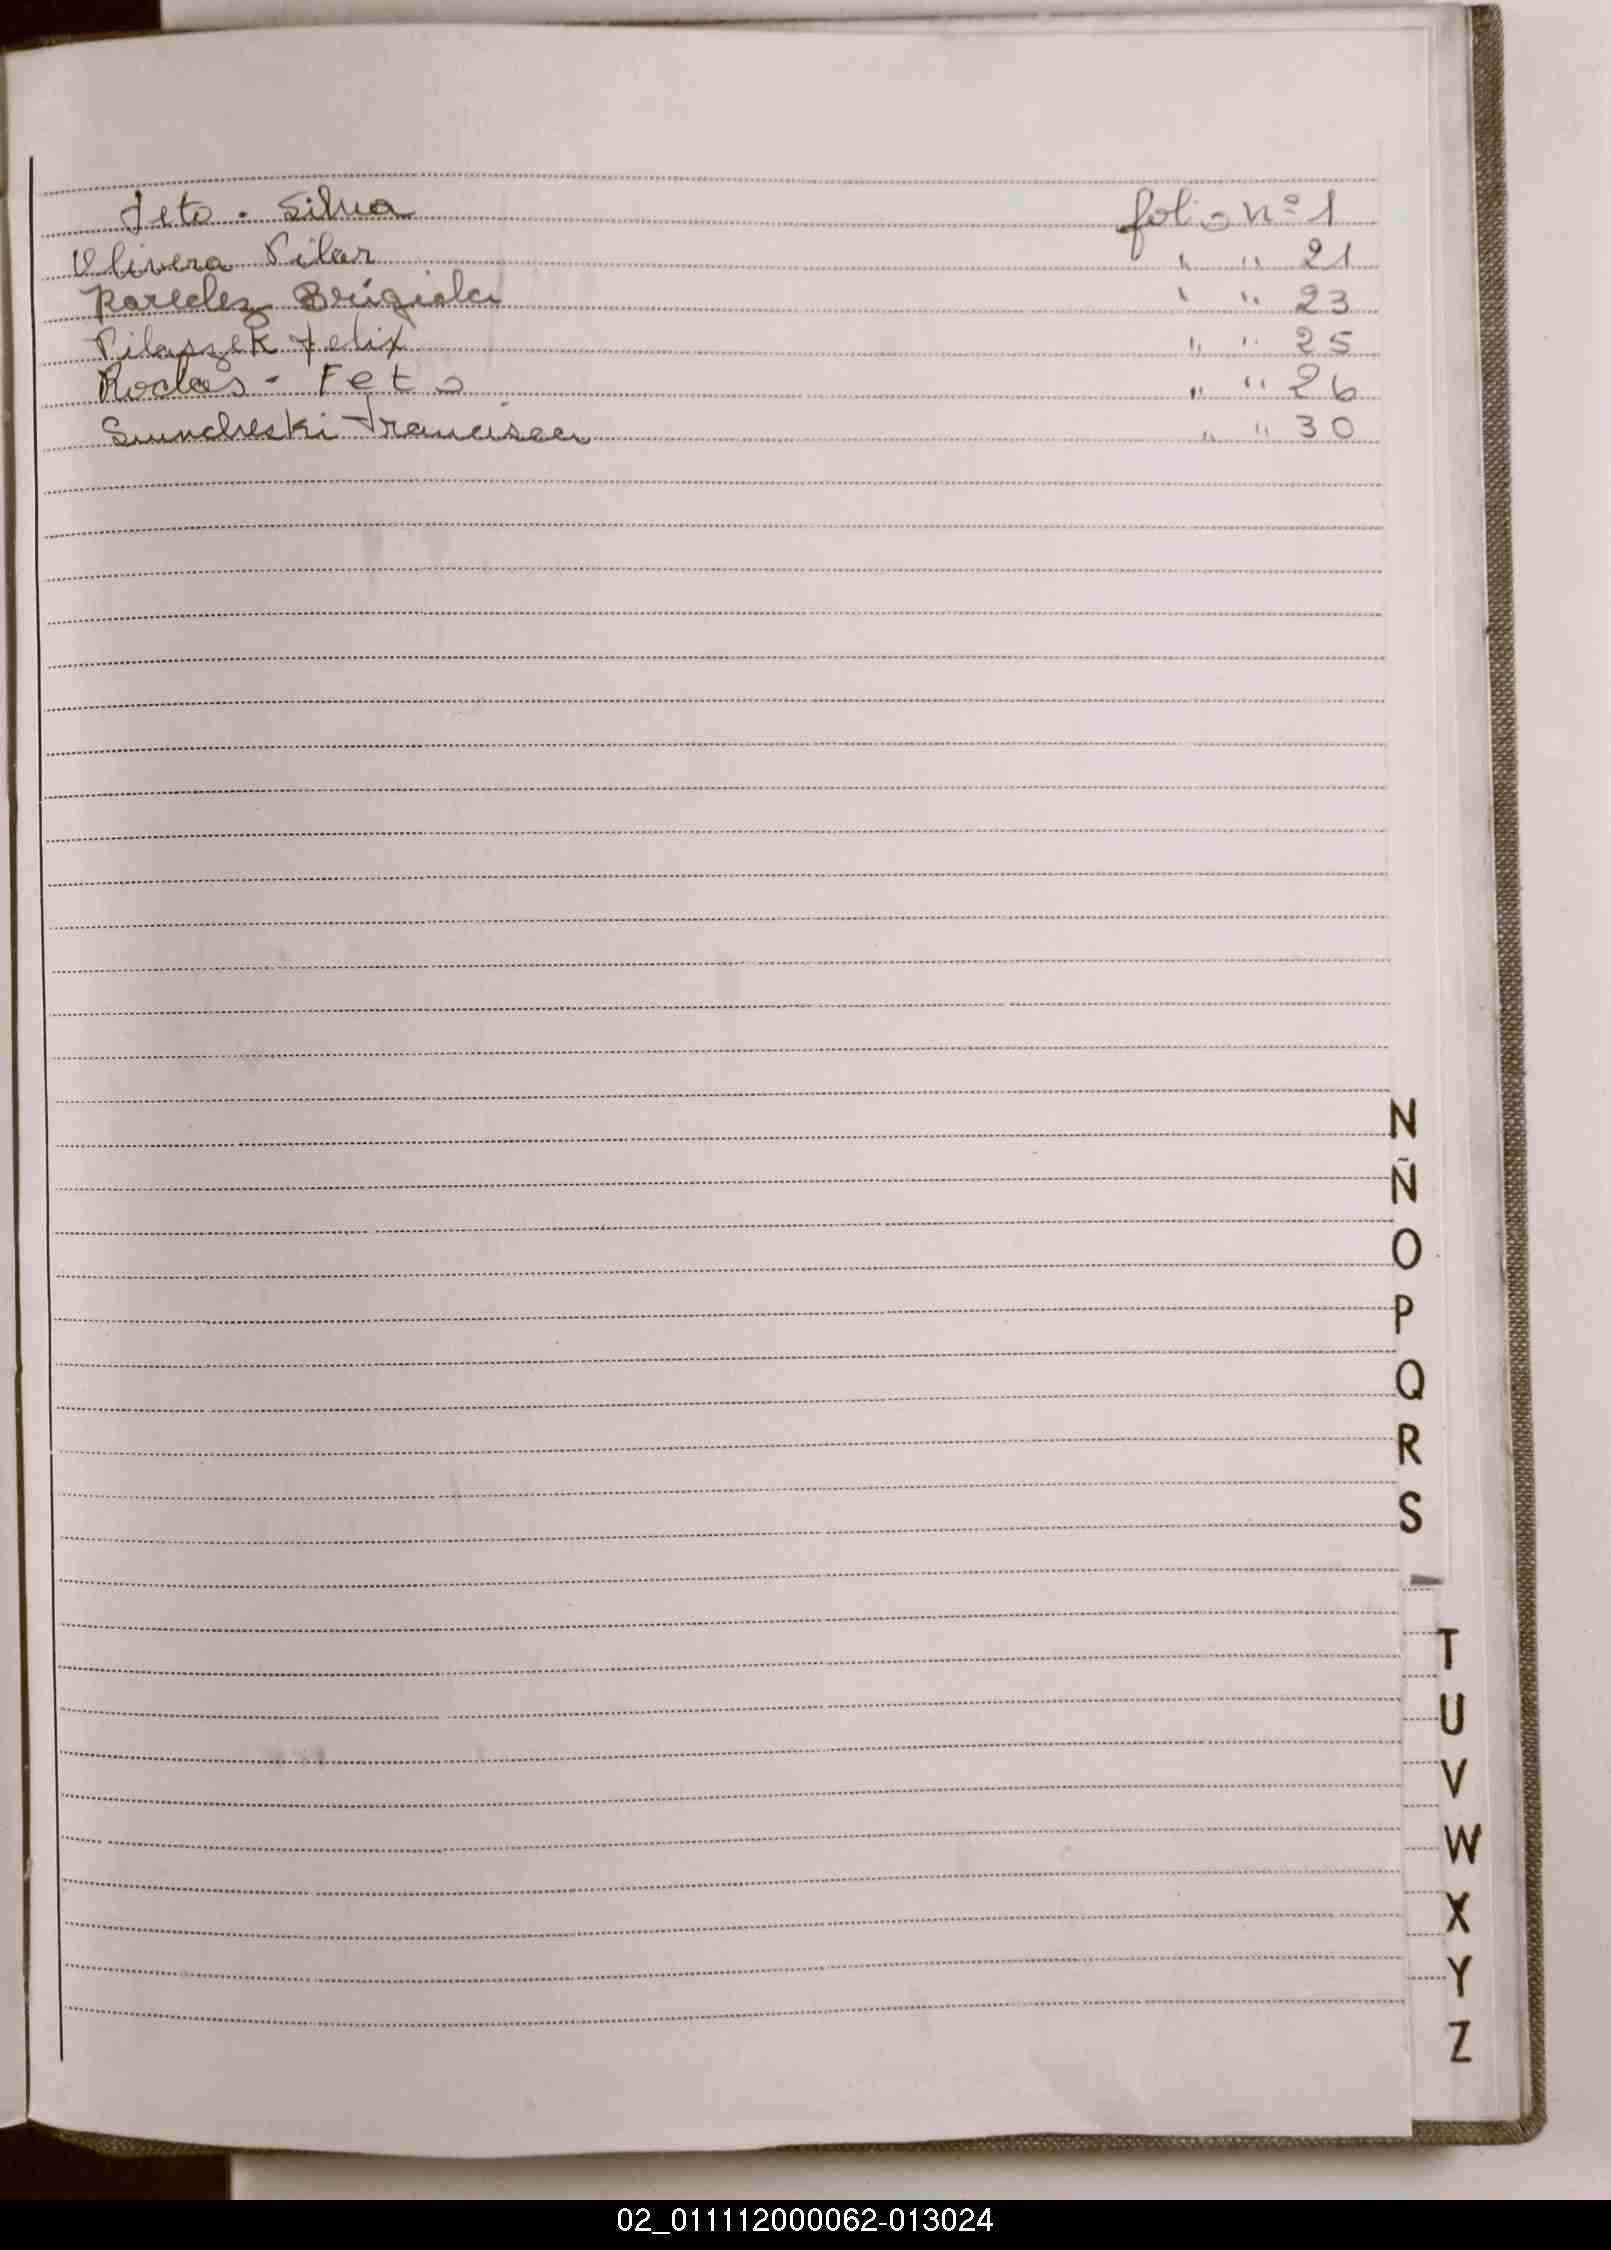 Feto - Silva folio nº 1
Olivera Pilar " " 21
Paredez Brigida " " 23
Pilaszek Felix " " 25
Rodas - Feto " " 26
Francisca " " 30
N
Ñ
O
P
Q
R
S
T
U
V
W
X
Y
Z
02_011112000062-013024